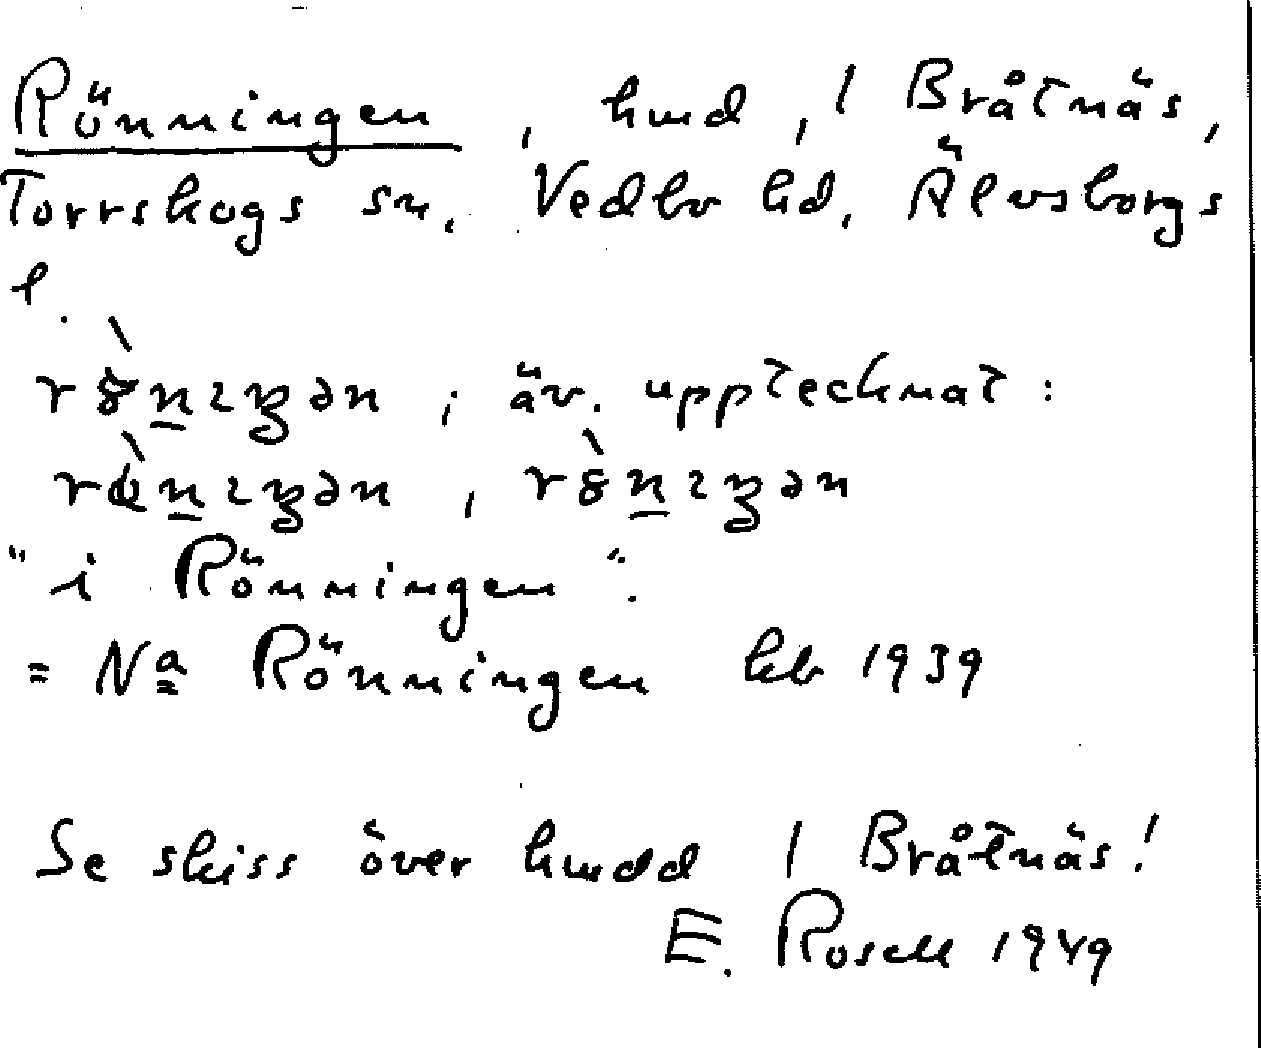 Rönningen, hmd, / Bråtnäs,
Torrskogs sn. Vedbo hd. Älvsborgs
l.
; äv. upptecknat:
,
"i Rönningen".
= Na Rönningen kb 1939
Se skiss över hmdd / Bråtnäs!
E. Rosell 1949